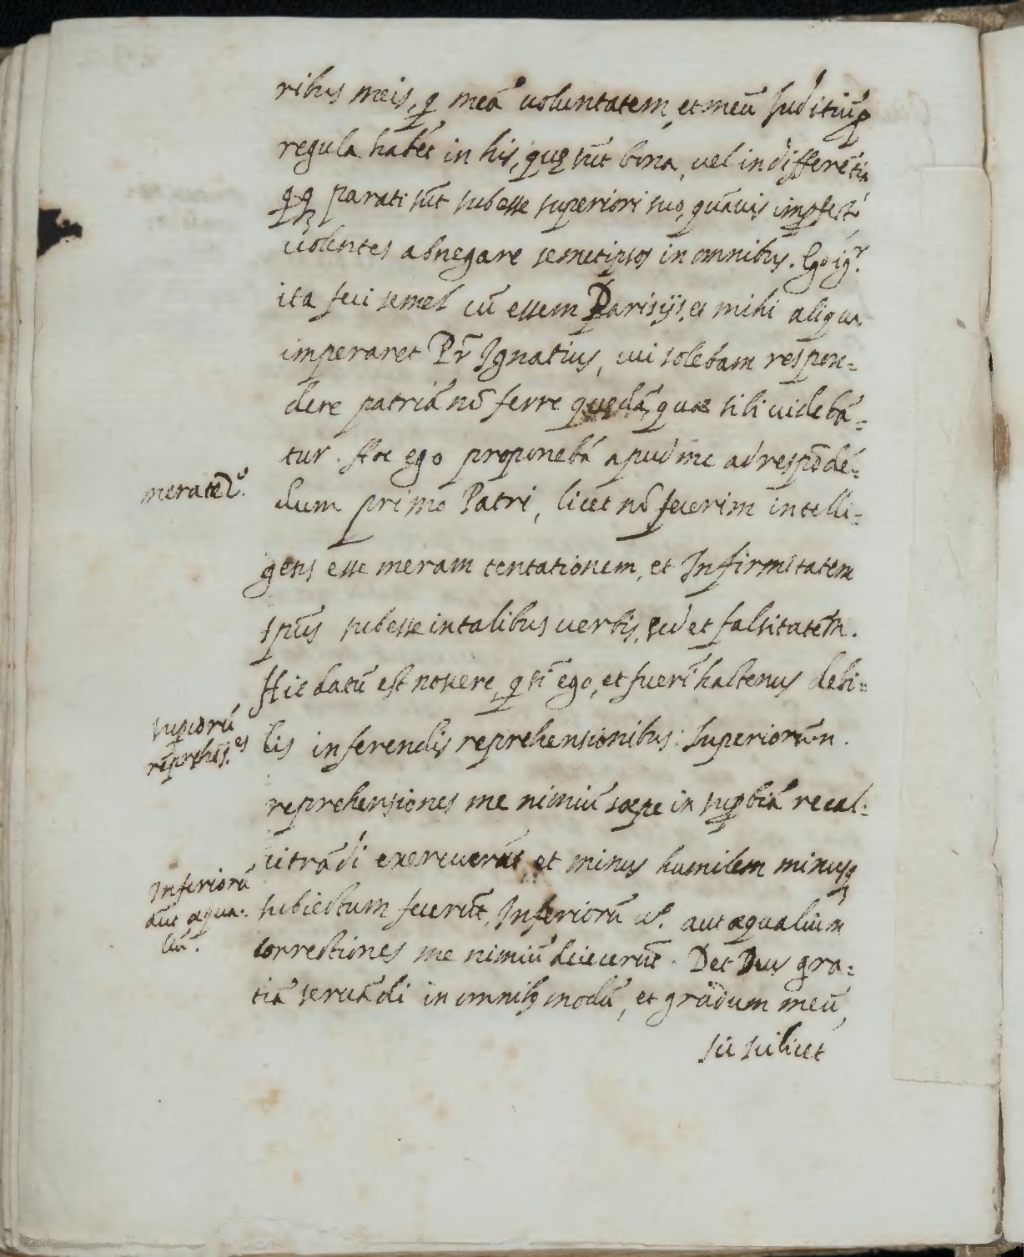 ribus meis, q̨ meã voluntatem, et meũ Iuditiũ p̱
regula habẽt in his, quę sũt bona, vel indifferẽtia
parati sũt subesse superiori suo, quãvis imp̱fectj
volentes abnegare semetipsos in omnibus. Ego igr̃.
ita feci semel cũ essem Parisijs, et mihi aliqua
imperaret Pr̃ Ignatius, cui solebam respon=
dere patriã nõ ferre quędã, quæ sibi videbã=
tur. Hoc ego proponebã apud me ad respõdẽ=
meratẽt.º
dum primo Patri, licet nõ fecerim intelli=
gens esse meram tentationem, et Infirmitatem
sp̃us subesse in talibus verbis, sed et falsitatem.
Hic datũ est novere, q̨ ego, et fueri hactenus debi=
sup̱iorũ
reprehẽs.es
lis in ferendis reprehensionibus: superiorum.
reprehensiones me nimiũ sæpe in sup̱biã recal=
citrãdi exercuerũt et minus humilem minusq̨
Inferiorũ
aut æqua=
liũ.
subiectum fecerũt, Inferiorũ v.º aut æqualium
correctiones me nimiũ deiecerũt. Det Deus gra=
tiã servãdi in omnibꝫ modũ, et gradum meũ,
sic scilicet